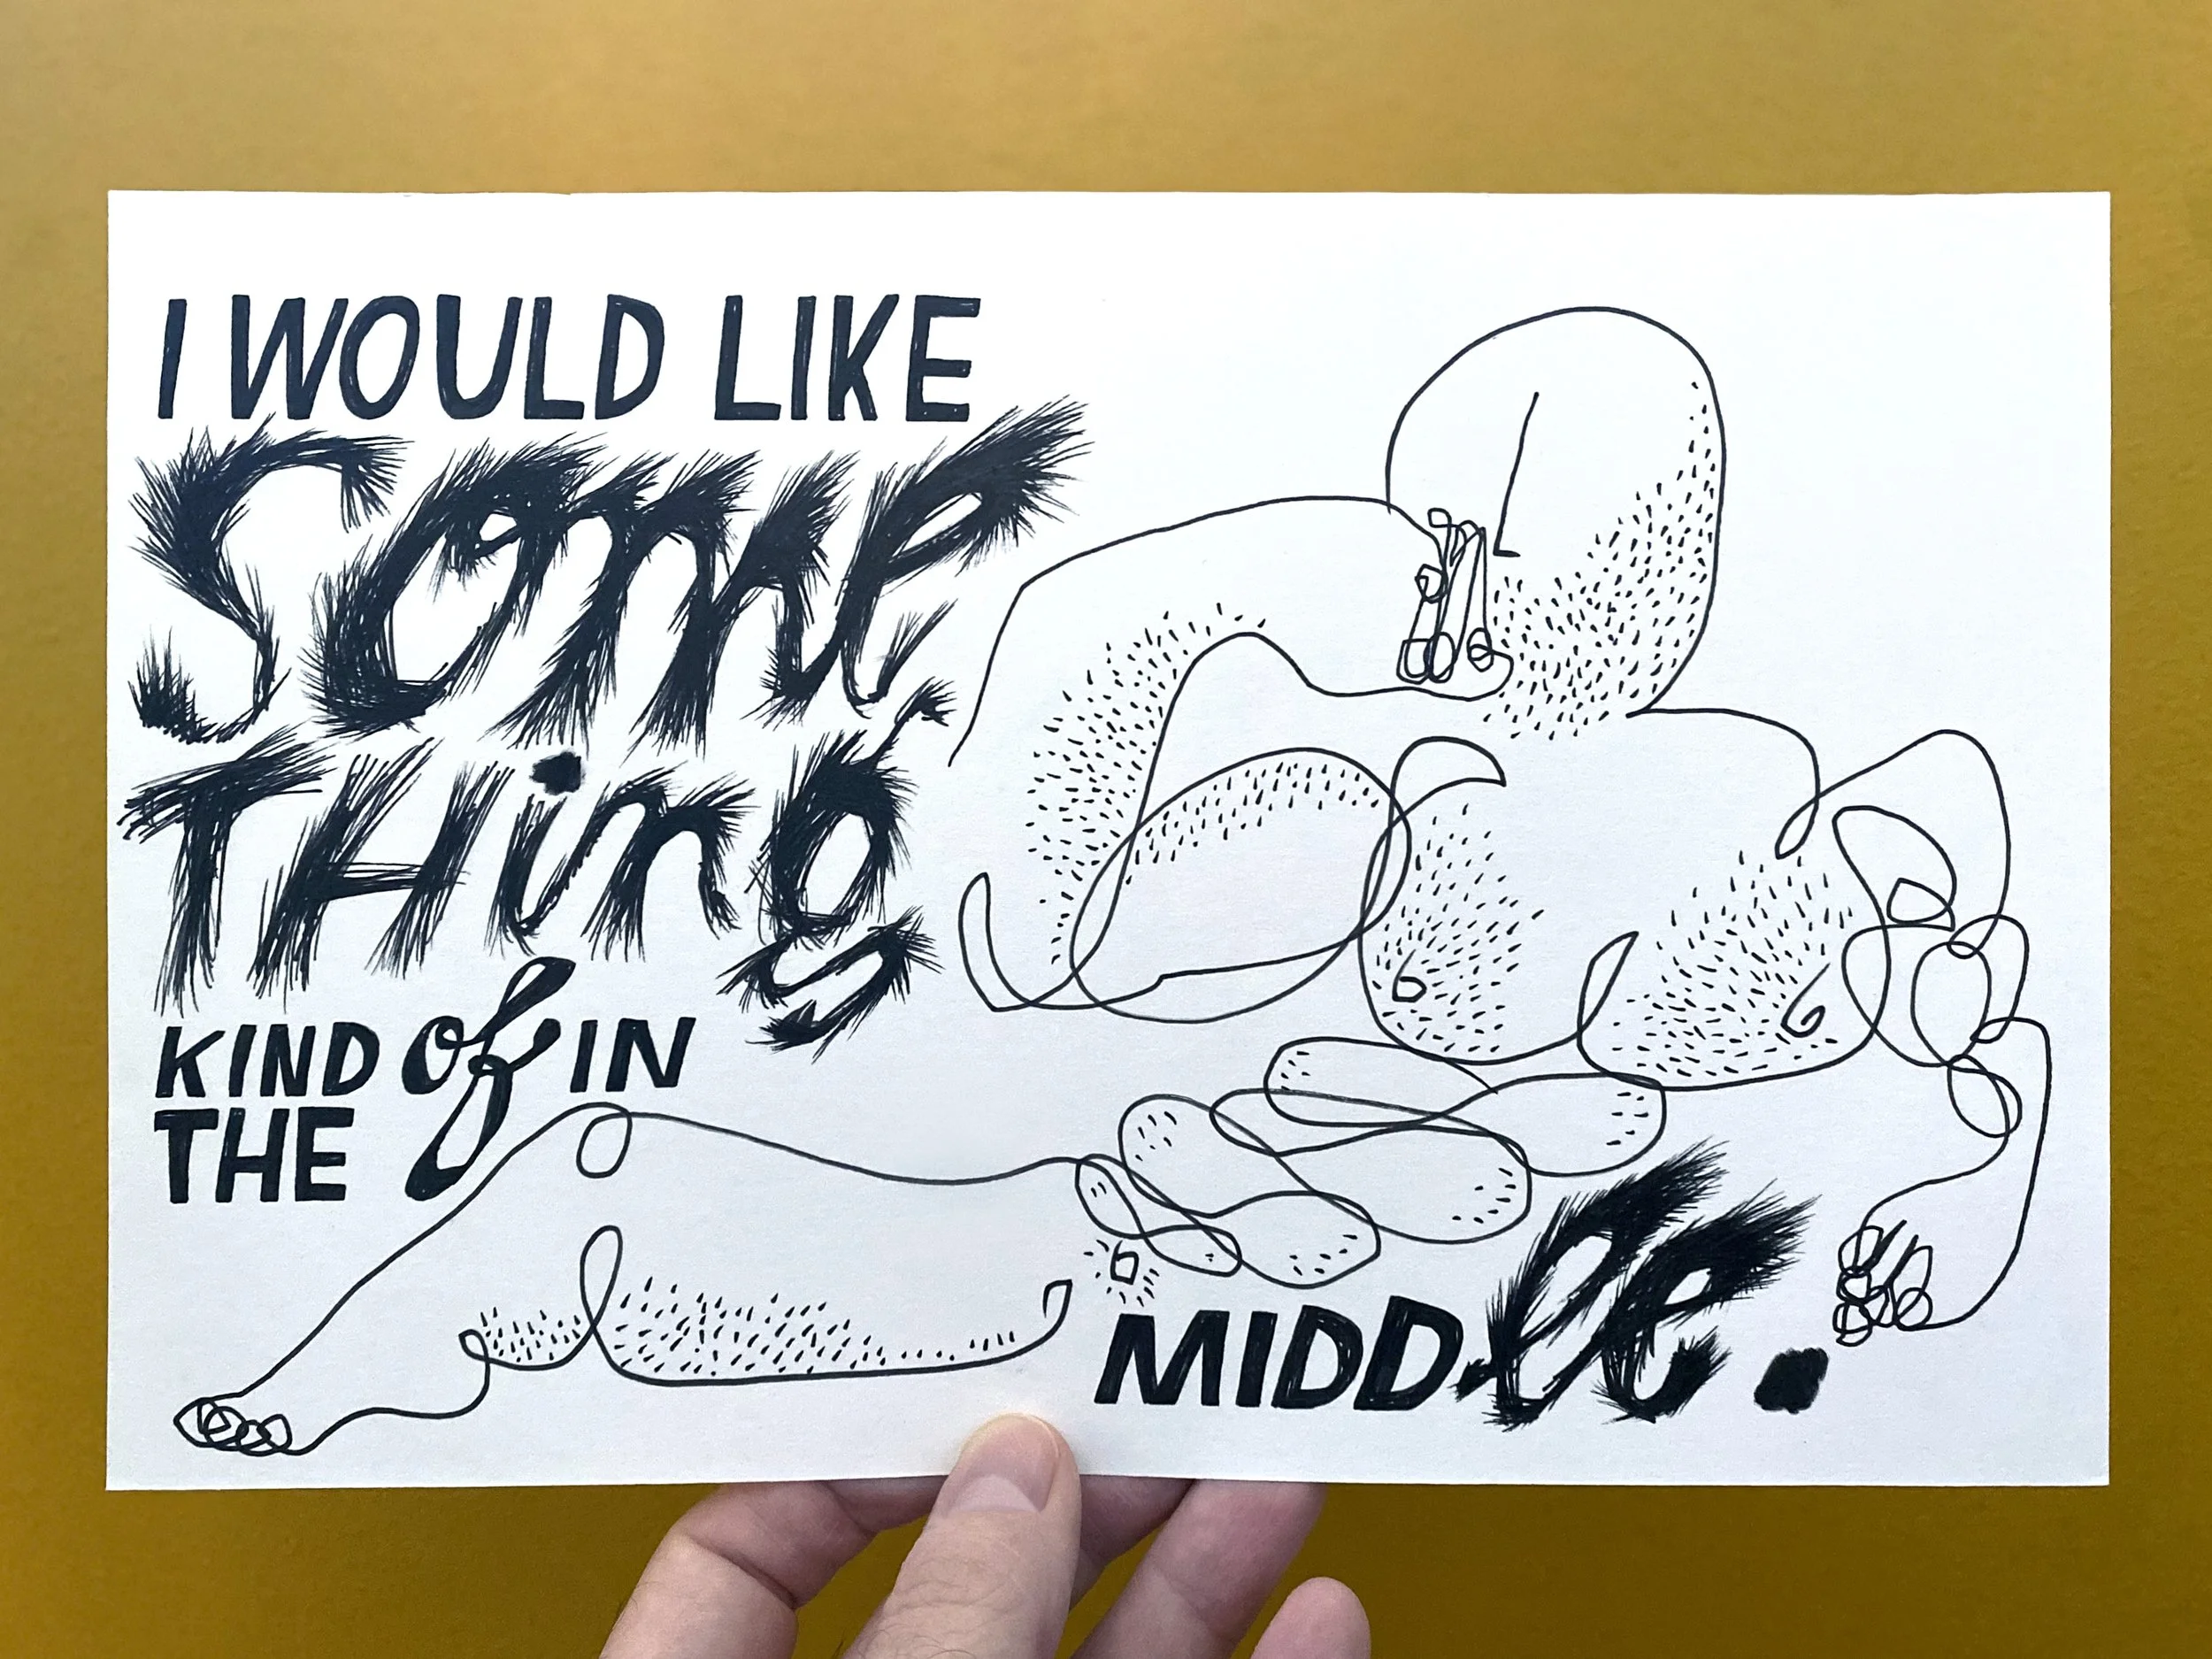 I WOULD LIKE
SOME
THING
KIND of IN
THE
MIDDle.